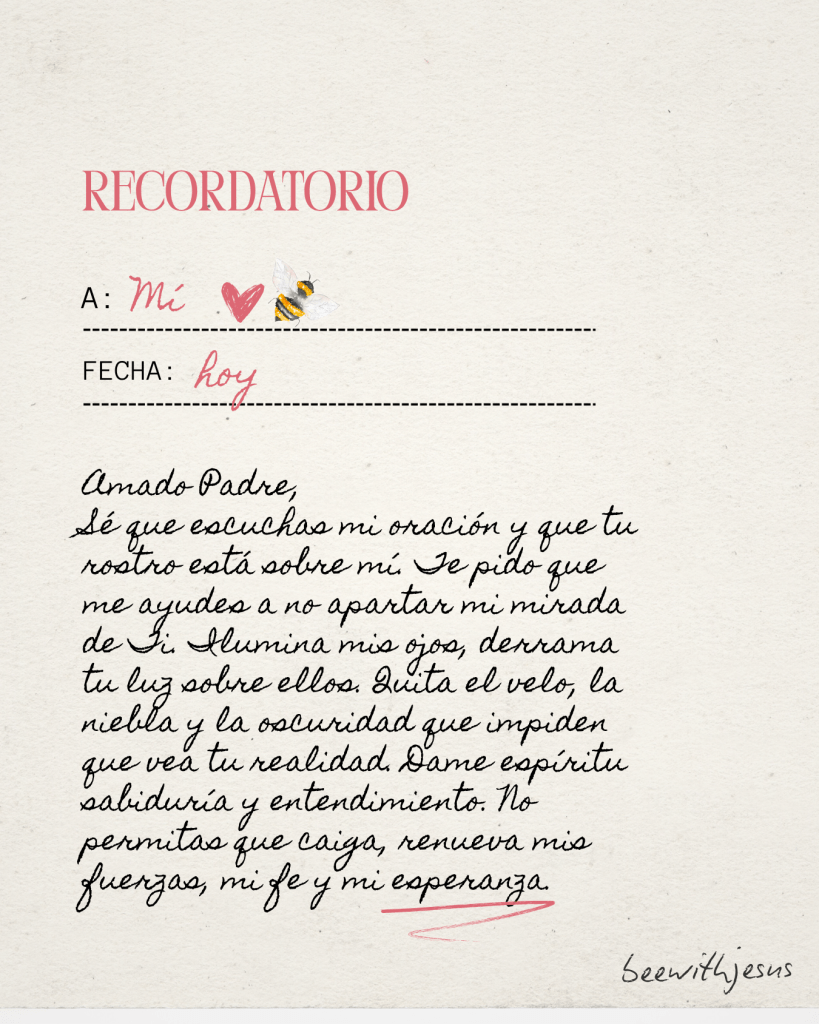 RECORDATORIO
A: Mí
FECHA: hoy
Amado Padre,
Sé que escuchas mi oración y que tu
rostro está sobre mí. Te pido que
me ayudes a no apartar mi mirada
de Ti. Ilumina mis ojos, derrama
tu luz sobre ellos. Quita el velo, la
niebla y la oscuridad que impiden
que vea tu realidad. Dame espíritu
sabiduría y entendimiento. No
permitas que caiga, renueva mis
fuerzas, mi fe y mi esperanza.
beewithjesus